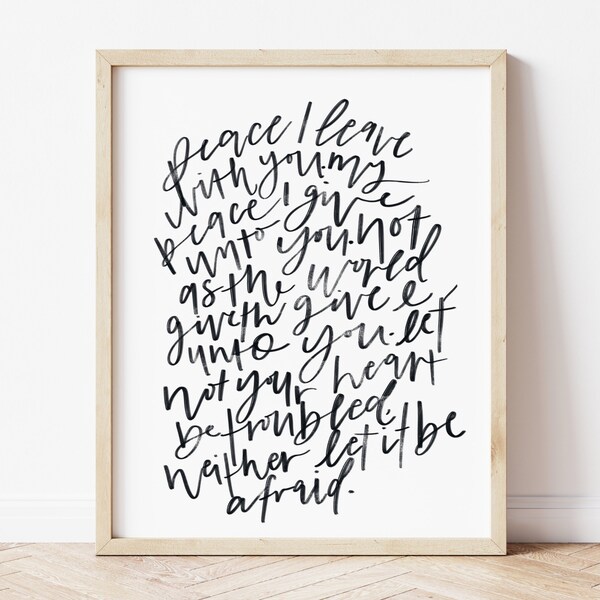 peace I leave
with you. my
peace I give
unto you. not
as the world
giveth give I
unto you. let
not your heart
be troubled,
neither let it be
afraid.